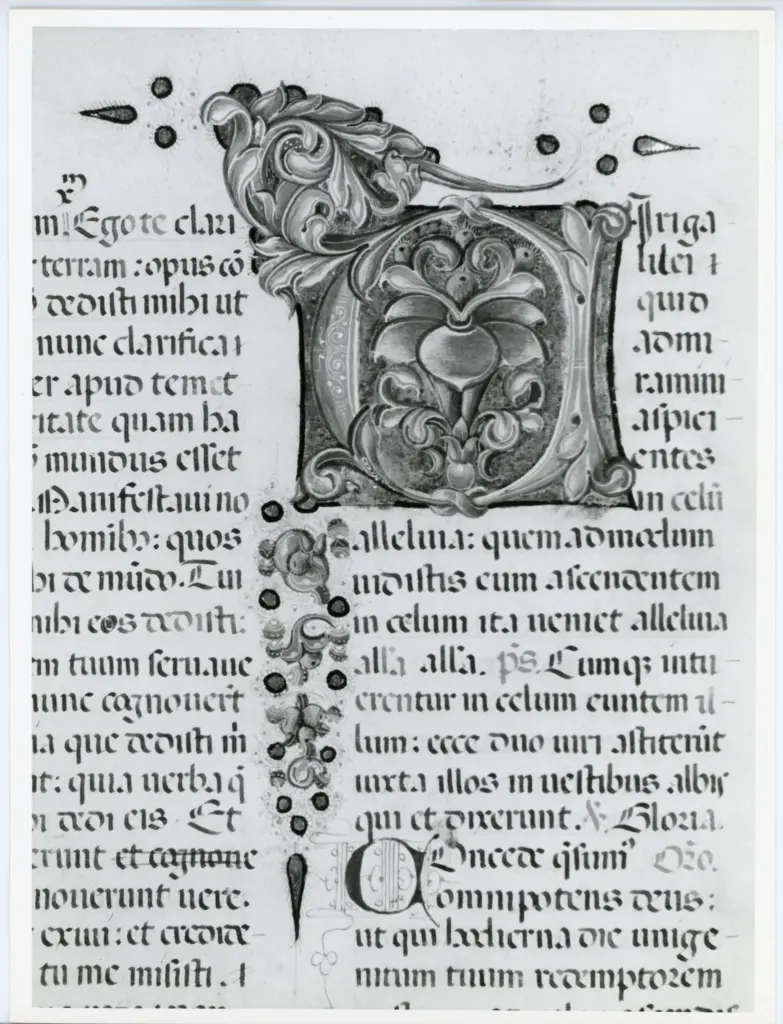 Ego te clari
terram: opus cō
dedisti mihi ut
nunc clarifica
er apud temet
ritate quam ha
mundus esset
Manifestaui no
homib;: quos
hi de mūdo. Tui
mihi eos dedisti:
m tuum seruaue
nunc cognouerūt
ia que dedisti m̄
t: quia uerba q̄
dedi eis. Et
erunt et cognoue
nouerunt uere.
exiui: et credide
tu me misisti.
Viri ga
lilei
quid
admi
ramini
aspici
entes
in celū
alleluia: quemadmodum
uidistis eum ascendentem
in celum ita ueniet alleluia
all'a all'a. p̄s. Cumq; intu
erentur in celum euntem il
lum: ecce duo uiri astiterūt
iuxta illos in uestibus albis
qui et dixerunt. V. Gloria.
Concede q̄sum' Orō.
omnipotens deus:
ut qui hodierna die unige
nitum tuum redemptorem